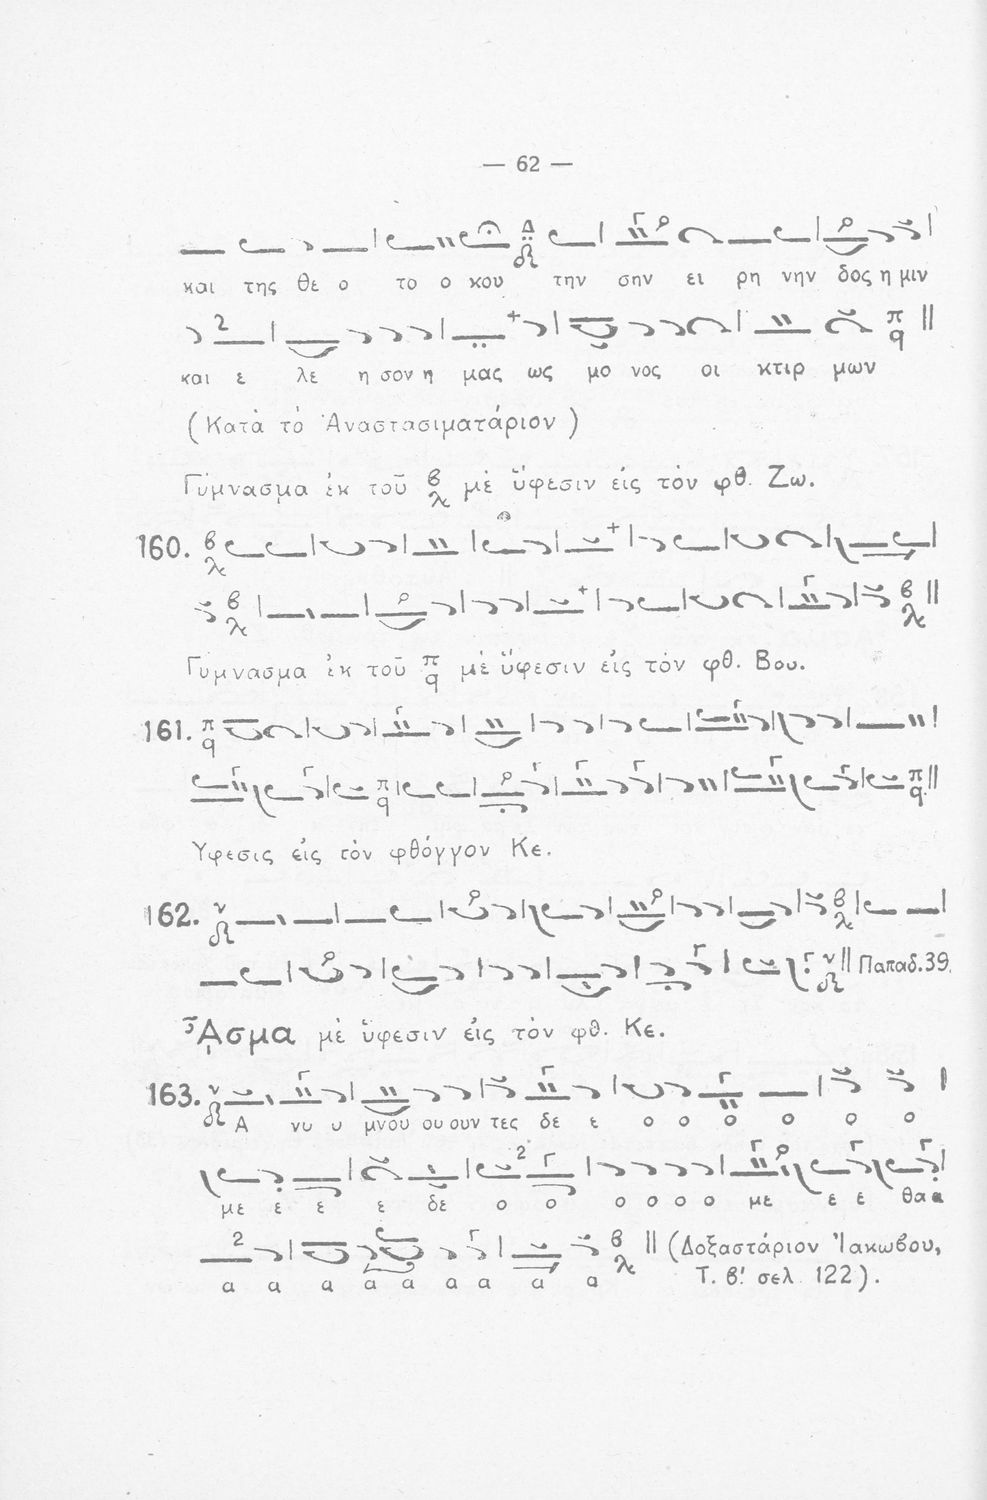 — 62 —
και της θε ο το ο κου την σην ει ρη νην δος η μιν
και ε λε η σον η μας ως μο νος οι κτιρ μων
(Κατὰ τὸ Ἀναστασιματάριον)
Γύμνασμα ἐκ τοῦ β λ μὲ ὕφεσιν εἰς τὸν φθ. Ζω.
160.
Γύμνασμα ἐκ τοῦ π q μὲ ὕφεσιν εἰς τὸν φθ. Βου.
161.
Ὕφεσις εἰς τὸν φθόγγον Κε.
162.
Παπαδ. 39.
ᾎσμα μὲ ὕφεσιν εἰς τὸν φθ. Κε.
163.
Α νυ υ μνου ου ουν τες δε ε ο ο ο ο ο ο
με ε ε ε δε ο ο ο ο ο ο με ε ε θα α
α α α α α α α α α
(Δοξαστάριον Ἰακώβου,
Τ. β.' σελ. 122).